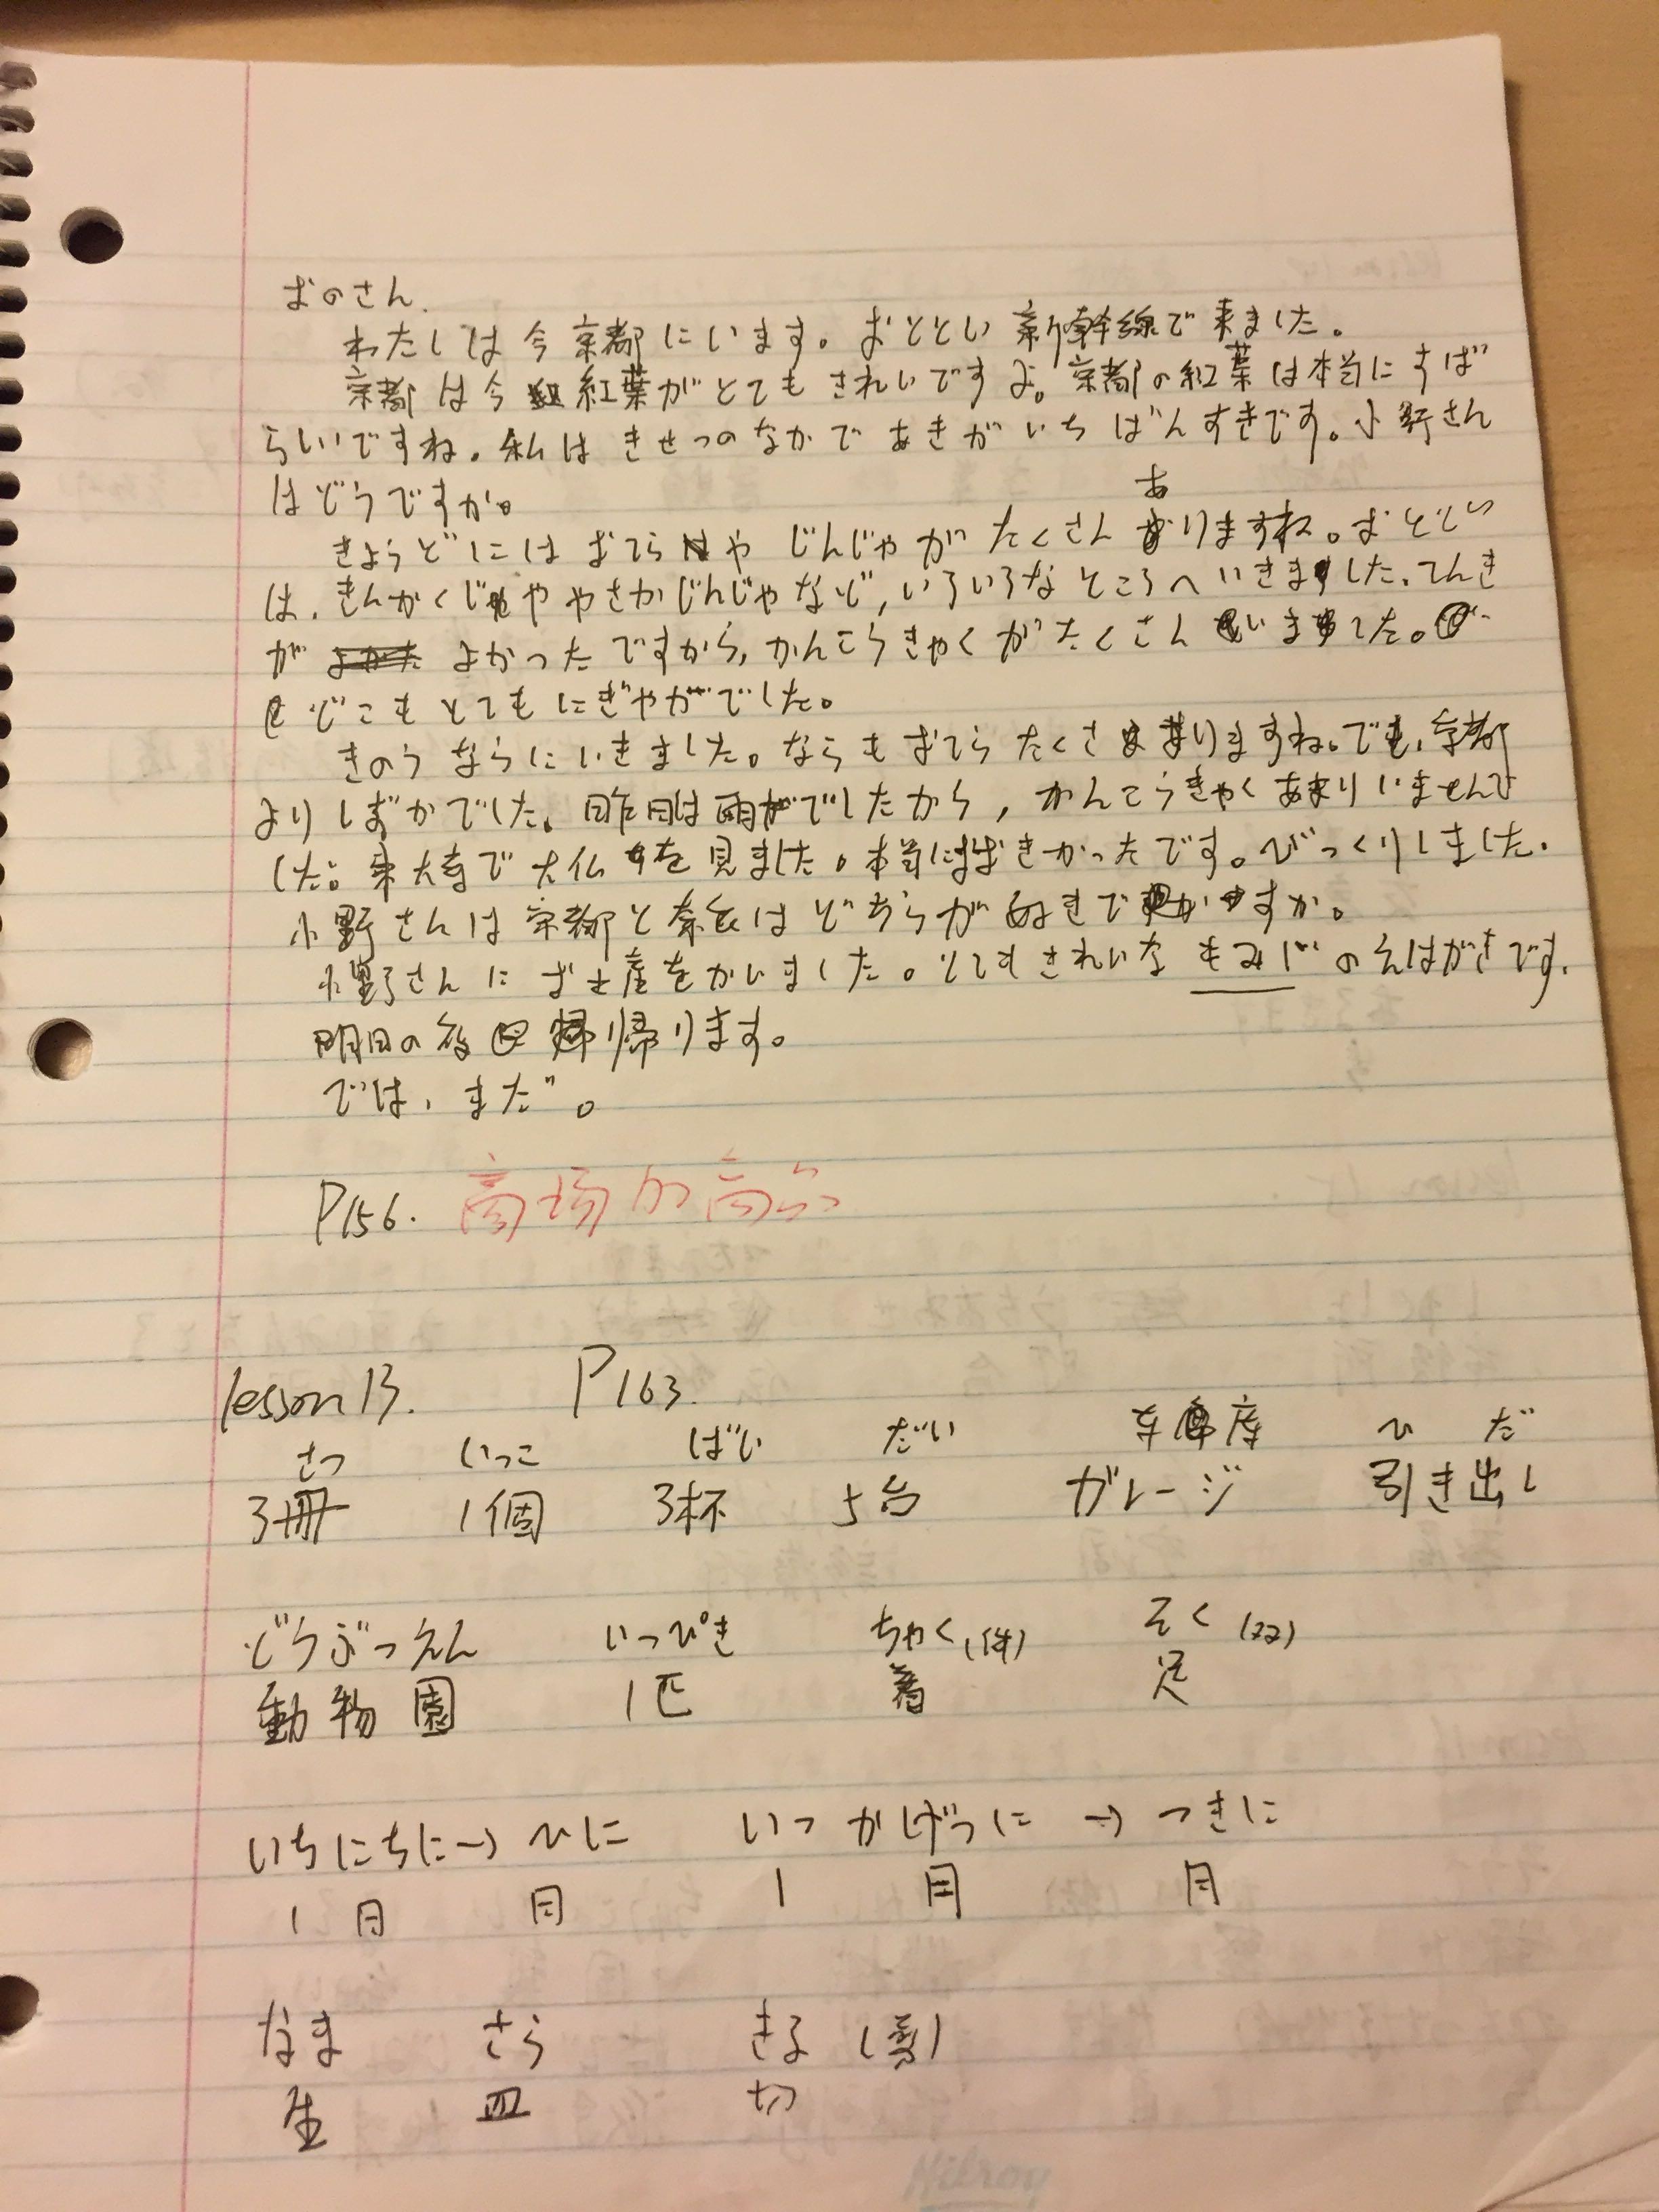 おのさん.
わたしは今京都にいます。おととい新幹線で来ました。
京都は今紅葉がとてもきれいですよ。京都の紅葉は本当にすば
らいいですね。私はきせつのなかであきがいちばんすきです。小野さん
はどうですか。
あ
きょうどにはおてらやじんじゃがたくさんありますね。おととい
は、きんかくじややさかじんじゃなど,いろいろなところへいきました、てんき
がよかったですから,かんこうきゃくがたくさんいました。
どこもとてもにぎやがでした。
きのうならにいきました。ならもおてらたくさありますね。でも、京都
よりしずかでした。昨日は雨がでしたから,かんこうきゃくあまりいませんで
した。東大寺で大仏を見ました。本当におおきかったです。びっくりしました.
小野さんは京都と奈良はどちらがすきですか。
小野さんにお土産をかいました。とてもきれいなもみじのえはがきです.
明日の夜帰ります。
では、まだ。
P156. 商场的商品
lesson 13. P163.
さつ いっこ ばい だい 车库 ひ だ
3冊 1個 3杯 5台 ガレージ 引き出し
どうぶつえん いっぴき ちゃく(件) そく(双)
動物園 1匹 着 足
いちにちに→ひに いっかげつに→つきに
1 日 日 1 月 月
なま さら きる (剪)
生 皿 切
Hilroy